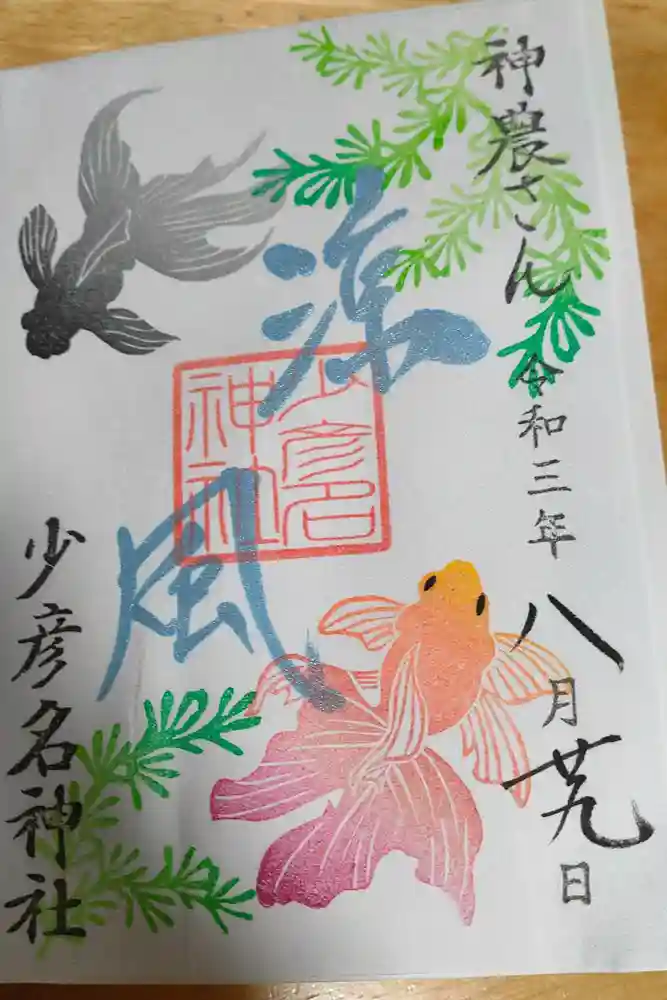 神農さん
令和三年八月廿九日
涼風
少彦名神社
少彦名神社